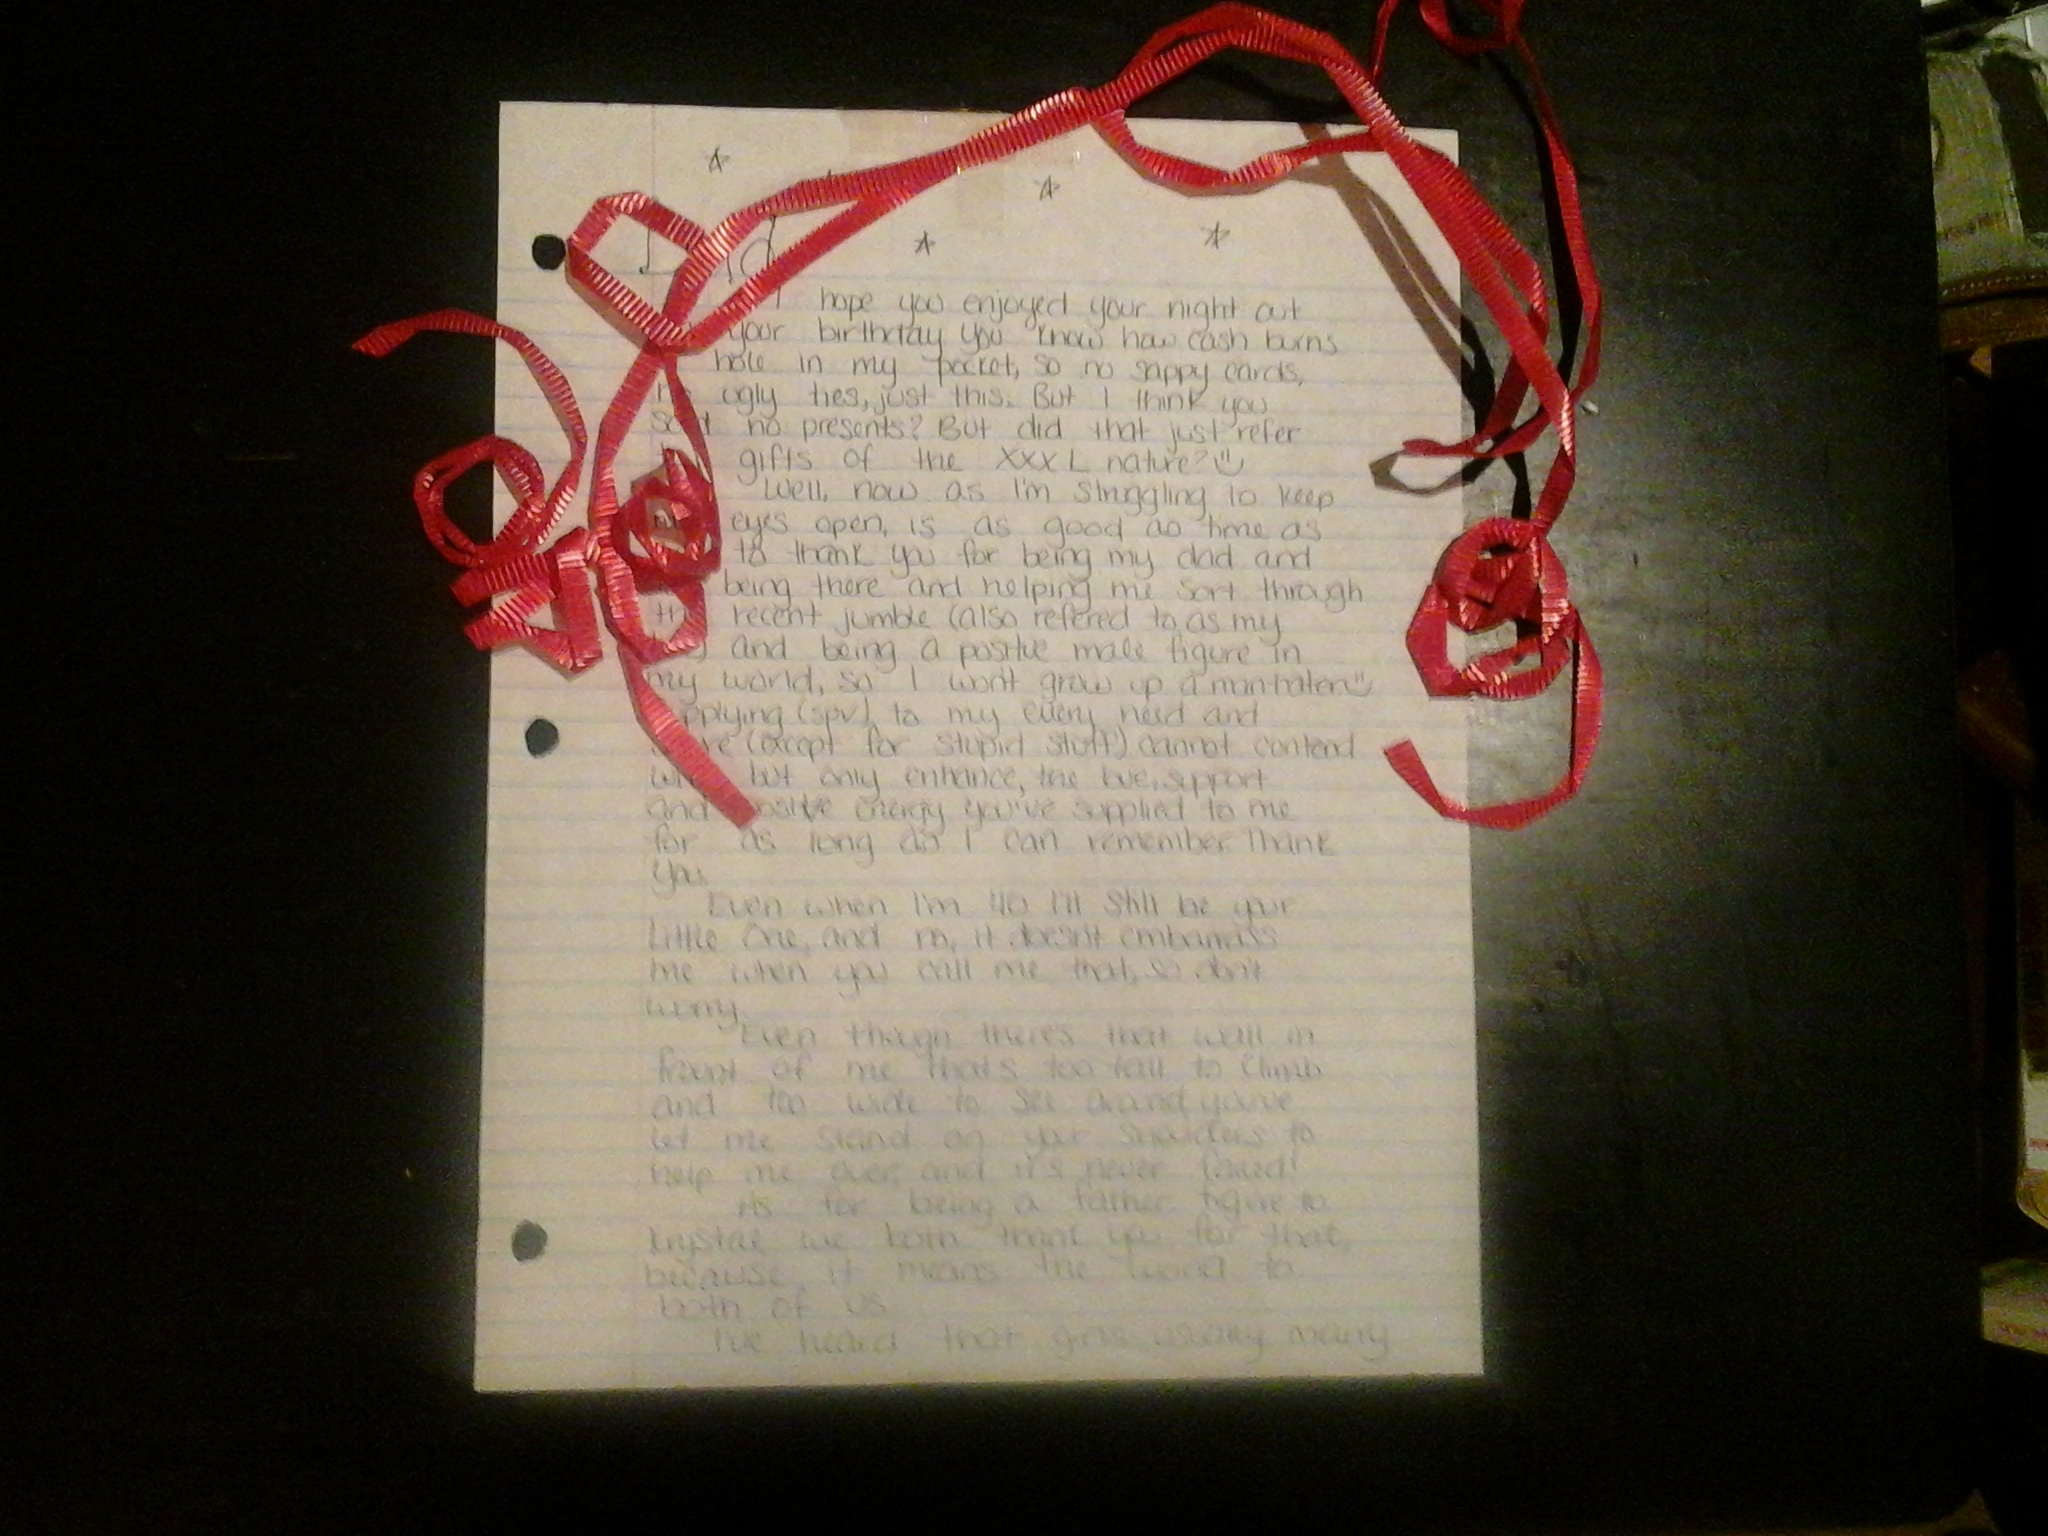 I hope you enjoyed your night out
your birthday you know how cash burns
hole in my pocket, so no sappy cards,
no ugly ties, just this. But I think you
said no presents? But did that just refer
gifts of the XXXL nature?
Well, now as I'm struggling to keep
my eyes open, is as good as time as
to thank you for being my dad and
being there and helping me sort through
this recent jumble (also refered to as my
and being a positive male figure in
my world, so I won't grow up a man-hater.
(spv) to my every need and
(except for stupid stuff) cannot contend
with but only enhance, the love, support
and positive energy you've supplied to me
for as long as I can remember. Thank
you.
Even when I'm 40 I'll still be your
Little One, and no, it doesn't embarrass
me when you call me that, so don't
worry.
Even though there's that wall in
front of me that's too tall to climb
and too wide to see around, you've
let me stand on your shoulders to
help me over, and it's never failed!
As for being a father figure to
Krystal we both thank you for that,
because, it means the world to
both of us
I've heard that girls usually marry